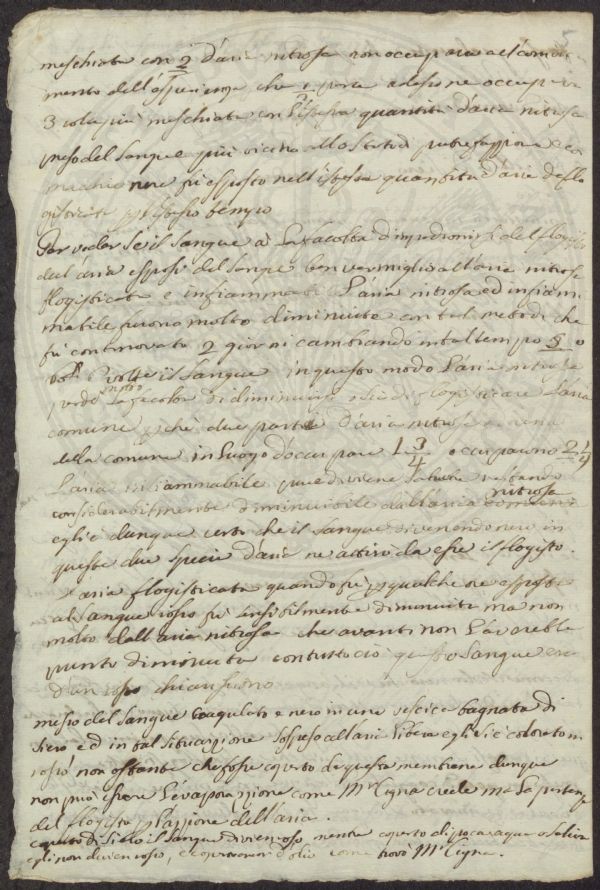 5
meschiata con 2 d'aria nitrosa non occupava al comin
mento dell'esperienza che 1 parte adesso ne occupava
3 meschiata con l'istessa quantità d'aria nitrosa
preso del sangue più vicino allo stato di putrefazione e co
nero fù esposto nell'istessa quantità d'aria deflo
gisticata p l'istesso tempo
Per veder se il sangue à la facoltà d'impadronirsi del flogisto
dell'aria esposi del sangue ben vermiglio all'aria nitrosa
flogisticata e infiammabile l'aria nitrosa ed infiam
mabile furono molto diminuite con tal metodo che
fù continovato 2 giorni cambiando in tal tempo 5 o
6 volte il sangue in questo modo l'aria nitrosa
perdè molto la facoltà di diminuire o sia di flogisticare l'aria
comune p chè due parti d'aria nitrosa e una
della comune in luogo d'occupare 1 3/4 occupavano 2 1/4
l'aria infiammabile pure diviene restando
considerabilmente diminuibile dall'aria nitrosa
egli è dunque certo che il sangue divenendo nero in
queste due specie d'aria ne attira da esse il flogisto.
L'aria flogisticata quando fù p qualche ore esposta
al sangue rosso fù sensibilmente diminuita ma non
molto dall'aria nitrosa che avanti non l'avarebbe
punto diminuita contuttociò questo sangue era
d'un rosso chiarissimo
messo del sangue coagulato e nero in una vescica bagnata di
siero ed in tal situazione sospeso all'aria libera egli si è colorato in
rosso non ostante che fosse coperto da questa membrana dunque
non può essere l'evaporazione come Mr Cigna crede ma la perdenza
del flogisto p l'azione dell'aria.
coperto di siero il sangue divien rosso, mentre coperto di poca acqua o saliva
egli non divien rosso, d'olio come trovò Mr Cigna.